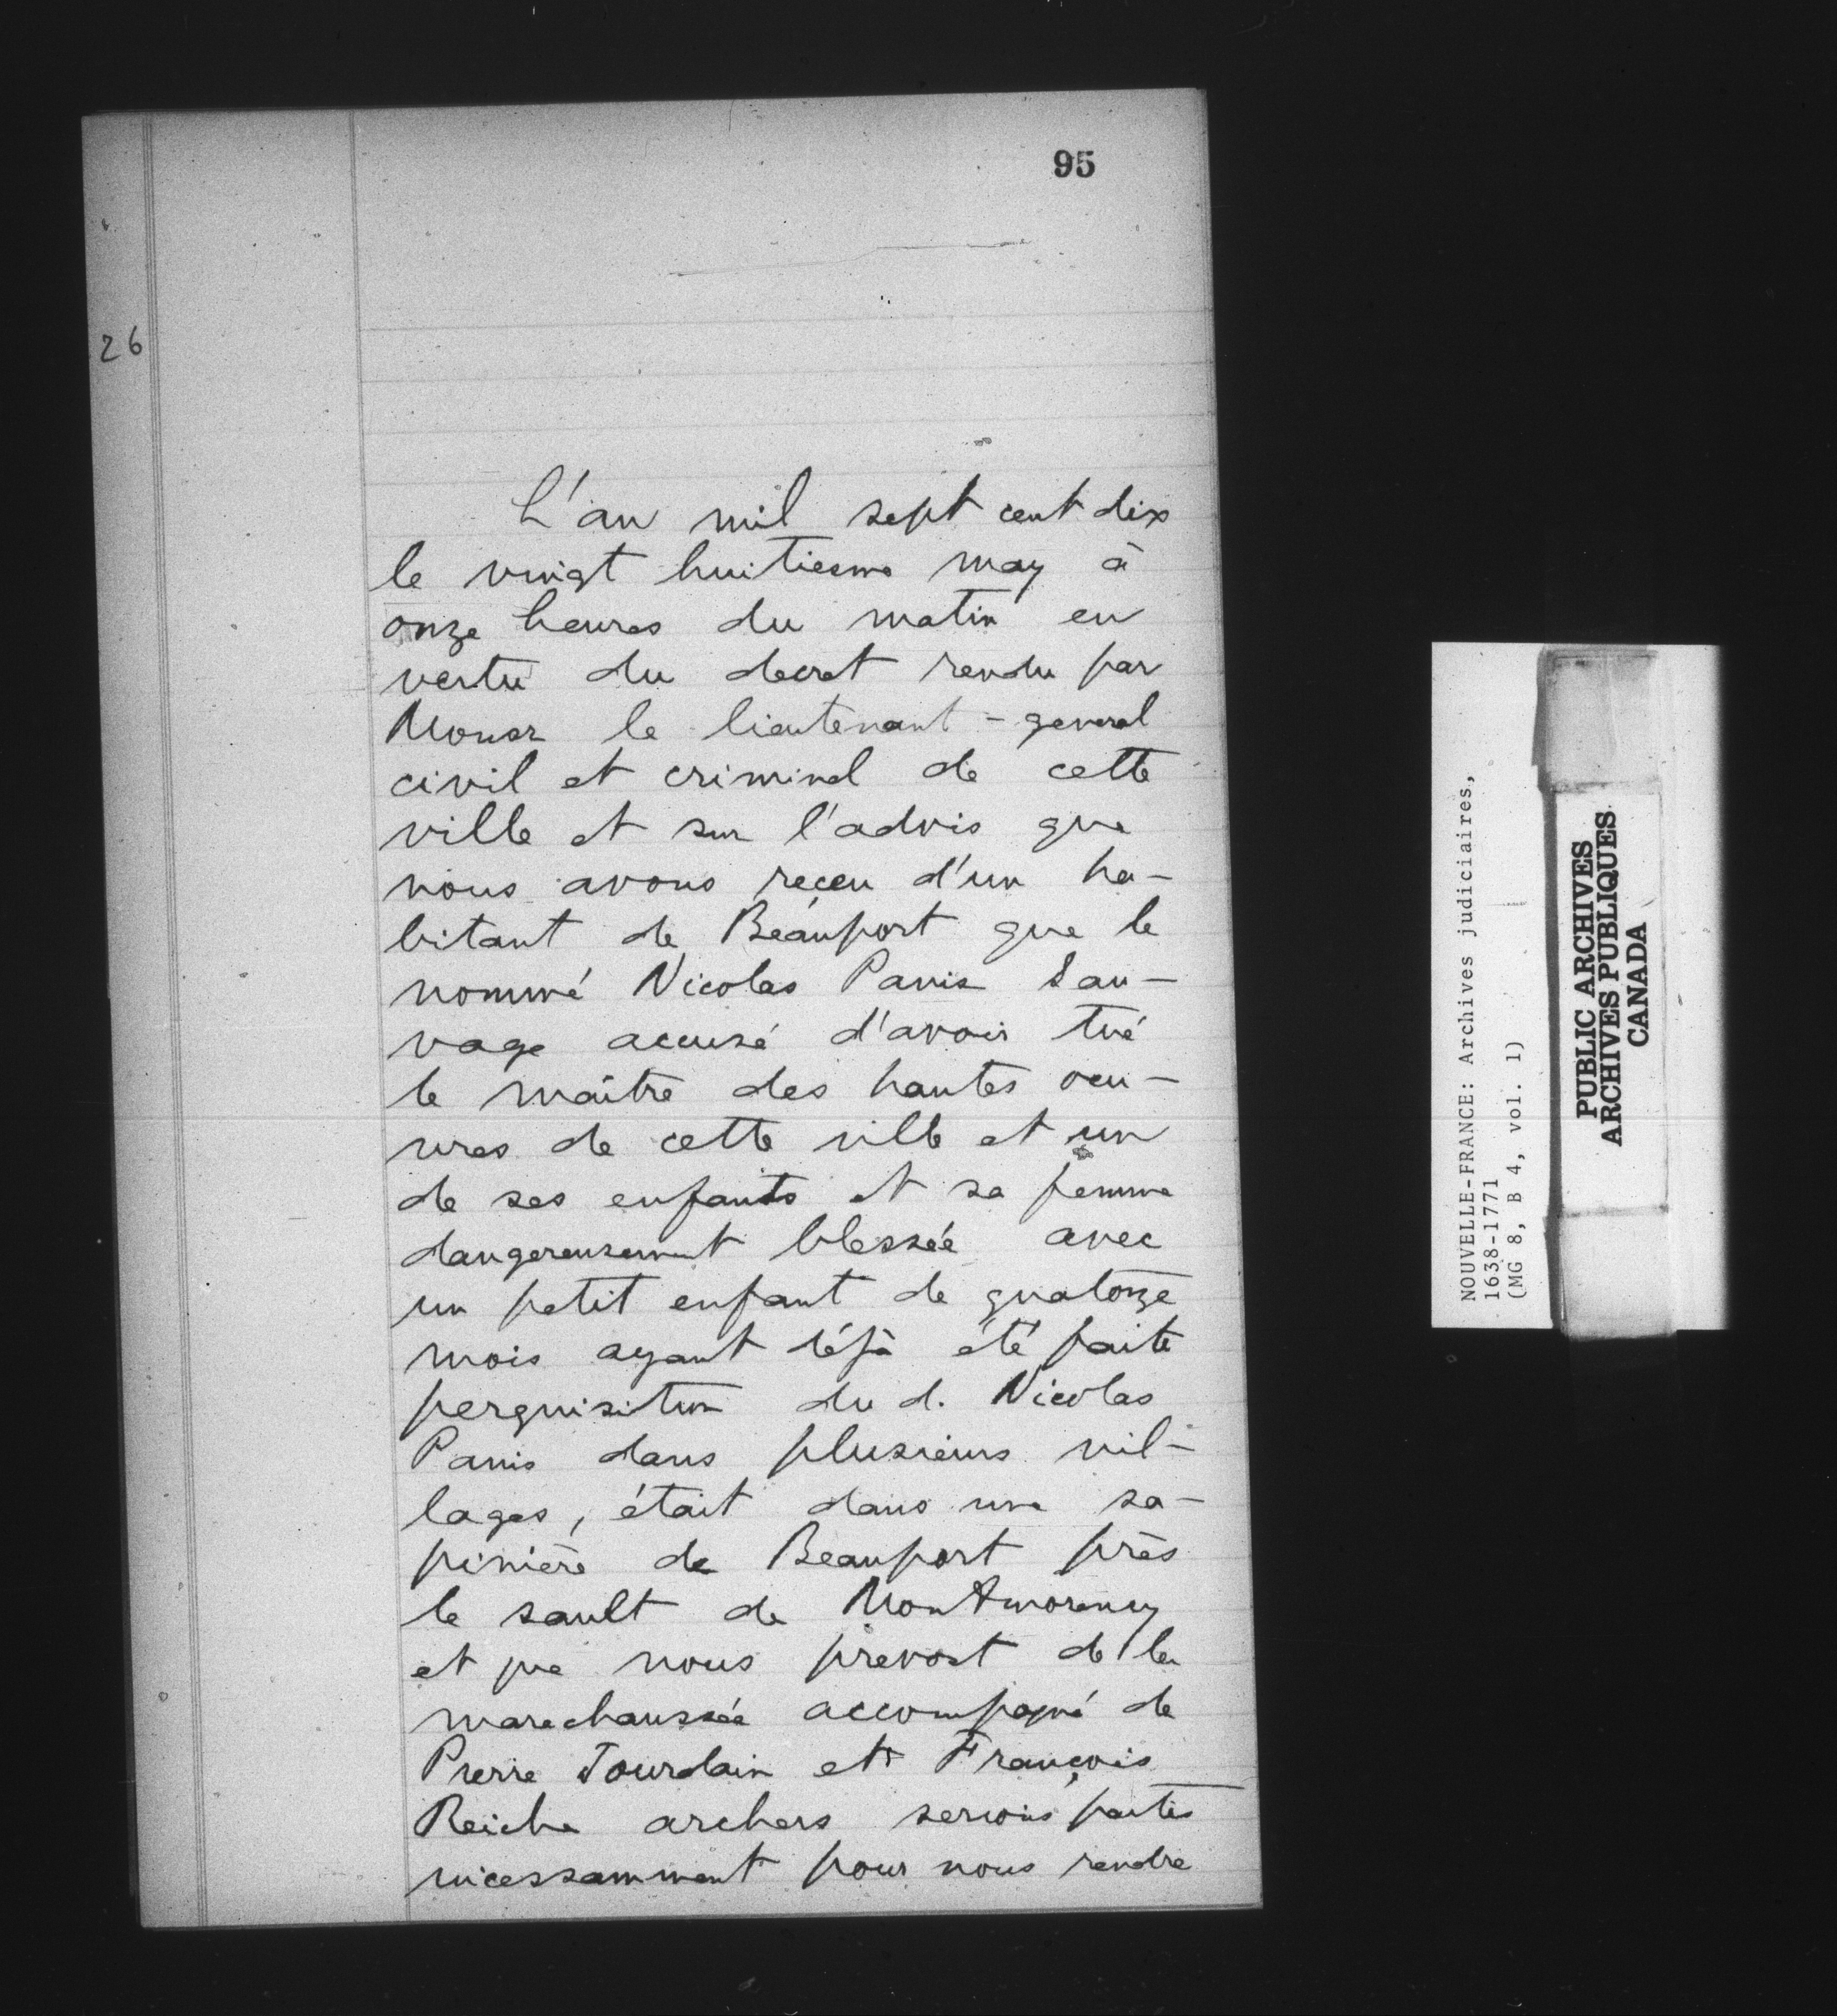 95
26
L'an mil sept cent dix
le vingt huitiesme may à
onze heures du matin en
vertu du decret rendu par
Monsr le lieutenant-general
civil et criminel de cette
ville et sur l'advis que
nous avons receu d'un ha-
bitant de Beauport que le
nommé Nicolas Panis Sau-
vage accusé d'avoir tué
le maître des hautes oeu-
vres de cette ville et un
de ses enfants et sa femme
dangereusement blessée avec
un petit enfant de quatorze
mois ayant déjà été faite
perquisition du d. Nicolas
Panis dans plusieurs vil-
lages, était dans une sa-
pinière de Beauport près
le sault de Montmorency
et que nous prevost de la
marechaussée accompagné de
Pierre Jourdain et François
Reiche archers serions partis
incessamment pour nous rendre
NOUVELLE-FRANCE: Archives judiciaires,
1638-1771
(MG 8, B 4, vol. 1)
PUBLIC ARCHIVES
ARCHIVES PUBLIQUES
CANADA